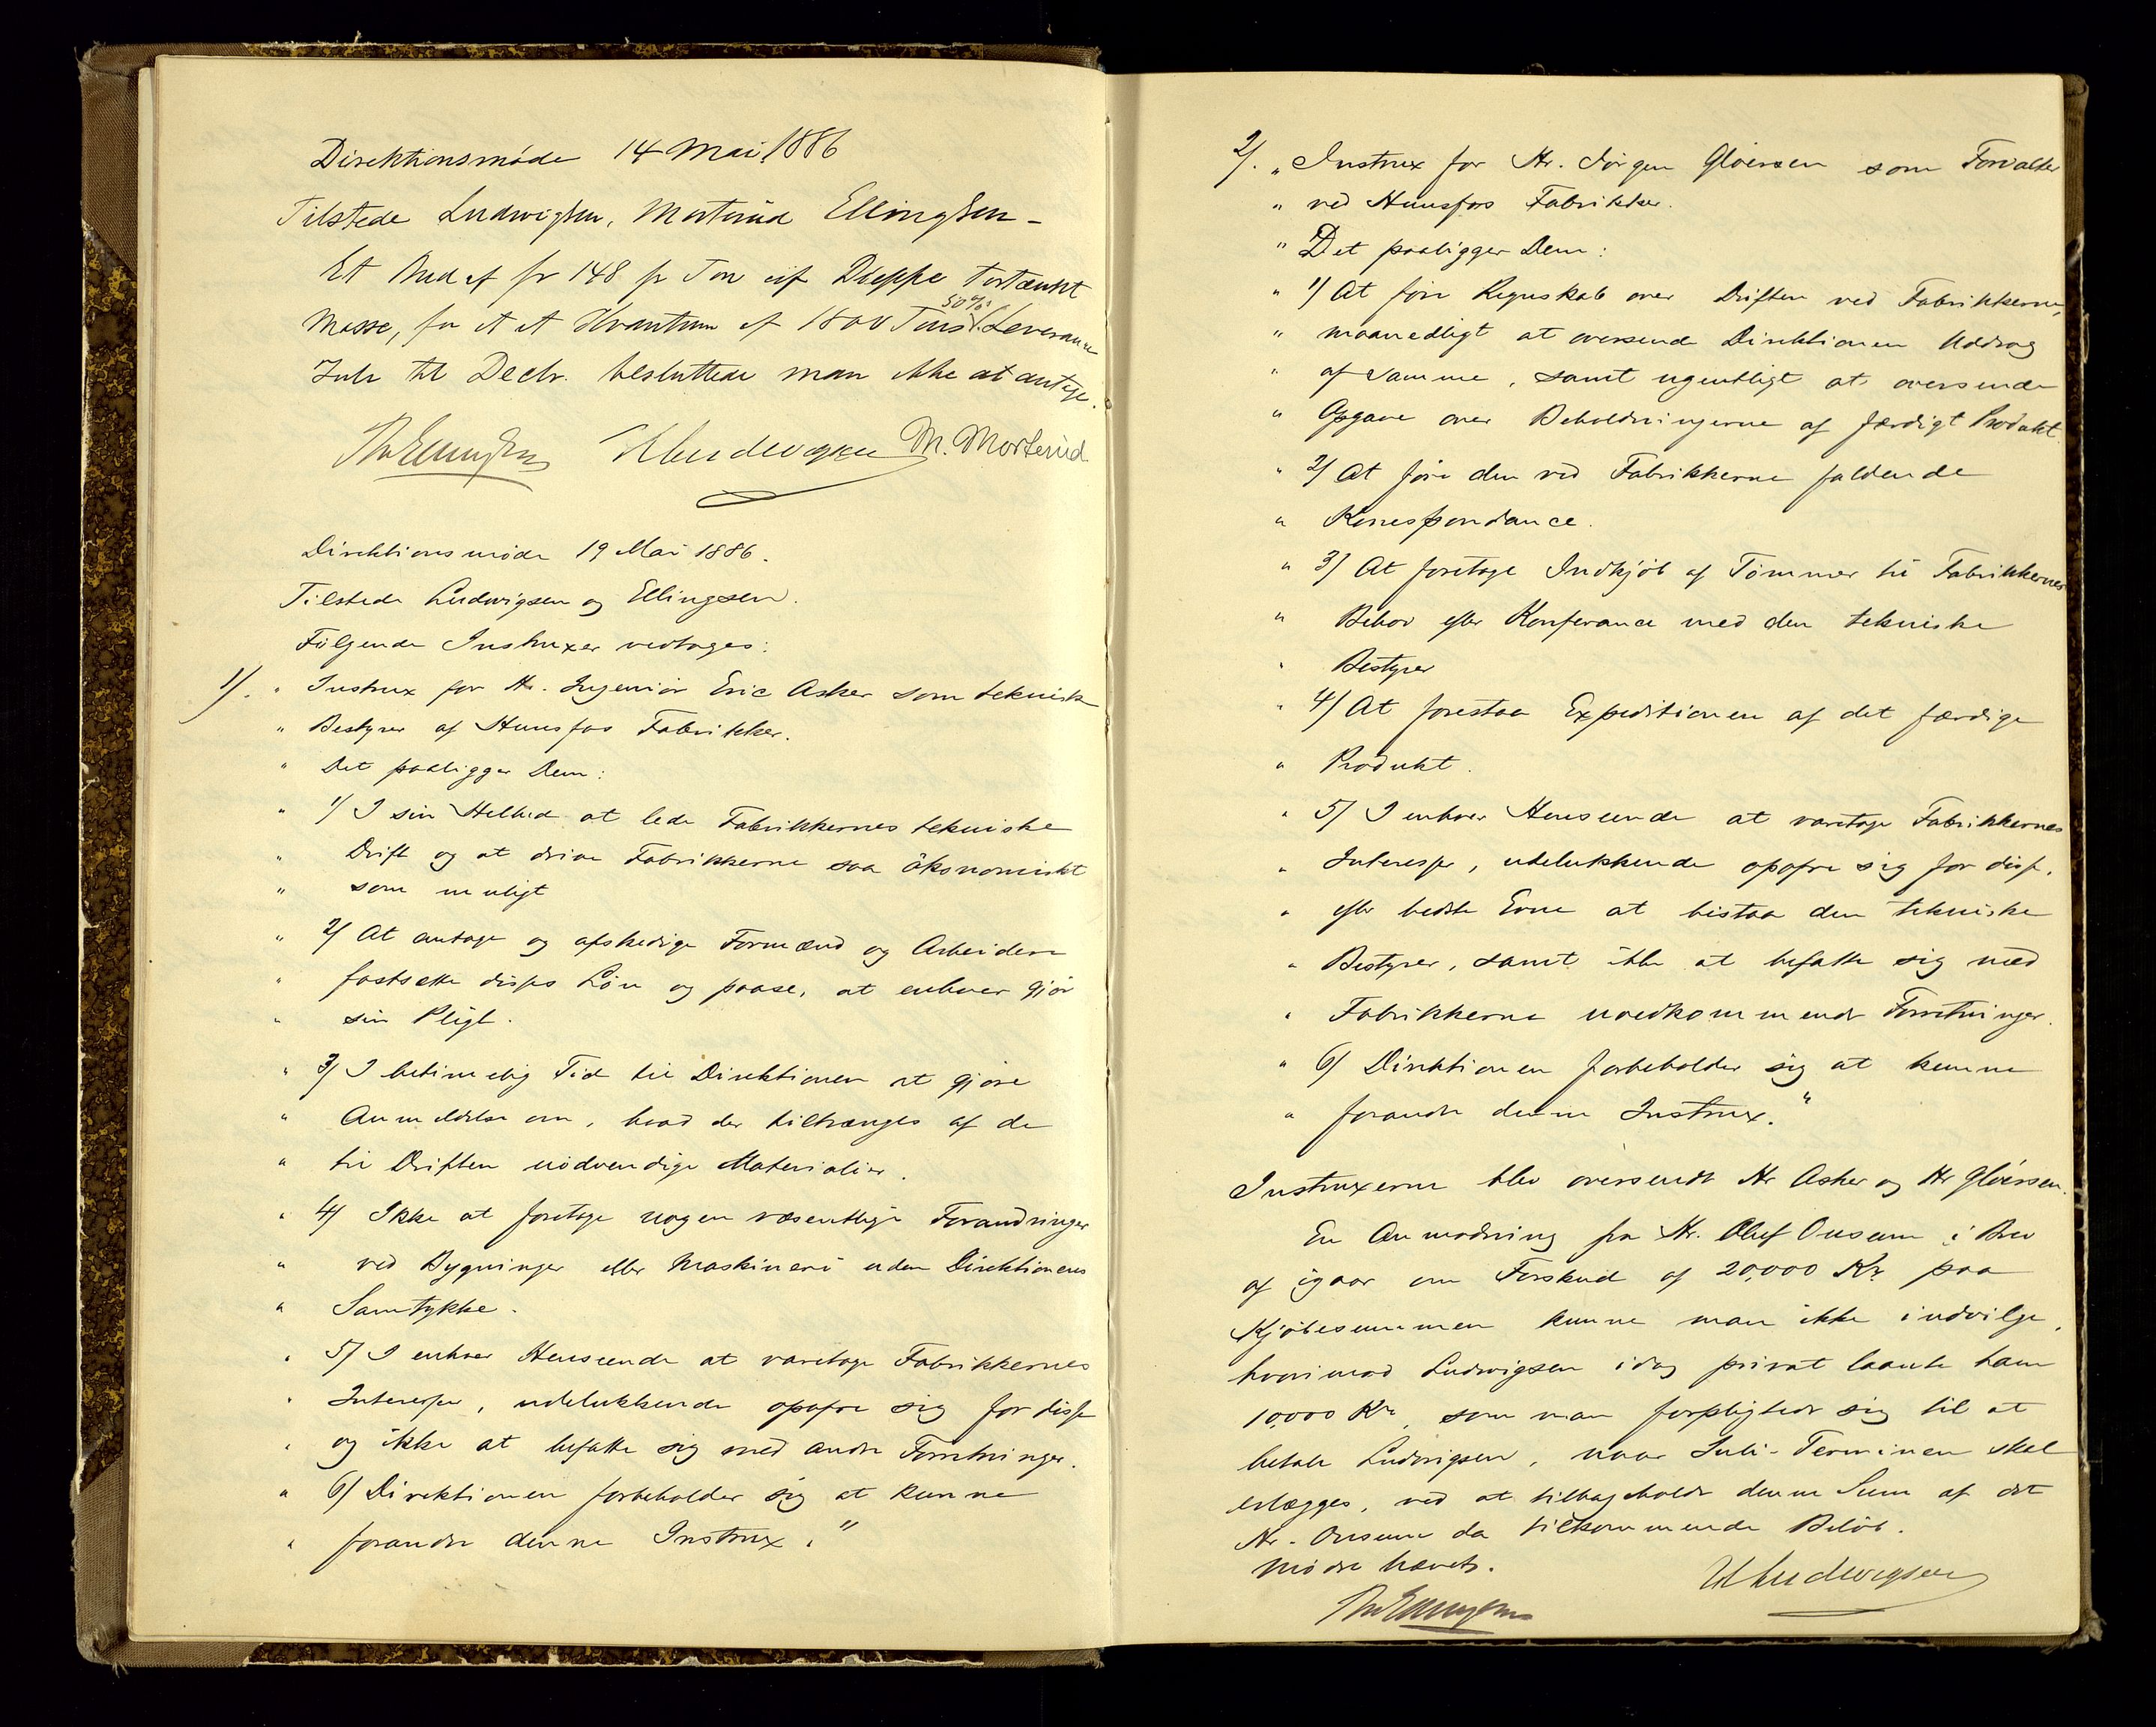 Direktionsmøde 14 Mai 1886
Tilstede Ludwigsen, Morterud Ellingsen –
Et Bud af fr 148 pr Ton cif Dieppe fortænkt
Masse, for et Kvantum af 1800 Tons 50% Leverance
Juli til Decbr. besluttede man ikke at antage.
ThEllingsen HLudwigsen M. Morterud
Direktionsmøde 19 Mai 1886.
Tilstede Ludwigsen og Ellingsen.
Følgende Instruxer vedtages:
1/. " Instrux for Hr. Ingeniør Eric Asker som teknisk
" Bestyrer af Hunsfos Fabrikker.
" Det paaligger Dem:
" 1/ I sin Helhed at lede Fabrikkernes tekniske
" Drift og at drive Fabrikkerne saa økonomiskt
" som muligt
" 2/ At antage og afskedige Formænd og Arbeidere
" fastsætte disses Løn og paase, at enhver gjør
" sin Pligt.
" 3/ I betimelig Tid til Direktionen at gjøre
" Anmeldelse om, hvad der tiltrænges af de
" til Driften nødvendige Materialier.
" 4/ Ikke at foretage nogen væsentlige Forandringer
" ved Bygninger eller Maskineri uden Direktionens
" Samtykke.
" 5/ I enhver Henseende at varetage Fabrikkernes
" Interesser, udelukkende opofre sig for disse
" og ikke at befatte sig med andre Forretninger.
" 6/ Direktionen forbeholder sig at kunne
" forandre denne Instrux."
2/. " Instrux for Hr. Jørgen Gløersen som Forvalter
" ved Hunsfos Fabrikker.
" Det paaligger Dem:
" 1/ At føre Regnskab over Driften ved Fabrikkerne,
" maanedligt at oversende Direktionen Uddrag
" af samme, samt ugentligt at oversende
" Opgave over Beholdningerne af færdigt Produkt.
" 2/ At føre den ved Fabrikkerne faldende
" Korrespondance.
" 3/ At foretage Indkjøb af Tømmer til Fabrikkernes
" Behov efter Konferance med den tekniske
" Bestyrer
" 4/ At forestaa Expeditionen af det færdige
" Produkt.
" 5/ I enhver Henseende at varetage Fabrikkernes
" Interesser, udelukkende opofre sig for disse,
" efter bedste Evne at bistaa den tekniske
" Bestyrer, samt ikke at befatte sig med
" Fabrikkerne uvedkommende Forretninger.
" 6/ Direktionen forbeholder sig at kunne
" forandre denne Instrux."
Instruxerne blev oversendt Hr Asker og Hr Gløersen.
En Anmodning fra Hr. Oluf Onsum i Brev
af igaar om Forskud af 20,000 Kr. paa
Kjøbesummen kunne man ikke indvilge,
hvorimod Ludwigsen idag privat laante ham
10,000 Kr, som man forpligtede sig til at
betale Ludwigsen, naar Juli-Terminen skal
erlægges, ved at tilbageholde denne Sum af det
Hr. Onsum da tilkommende Beløb.
Mødet hævet.
HLudwigsen
ThEllingsen